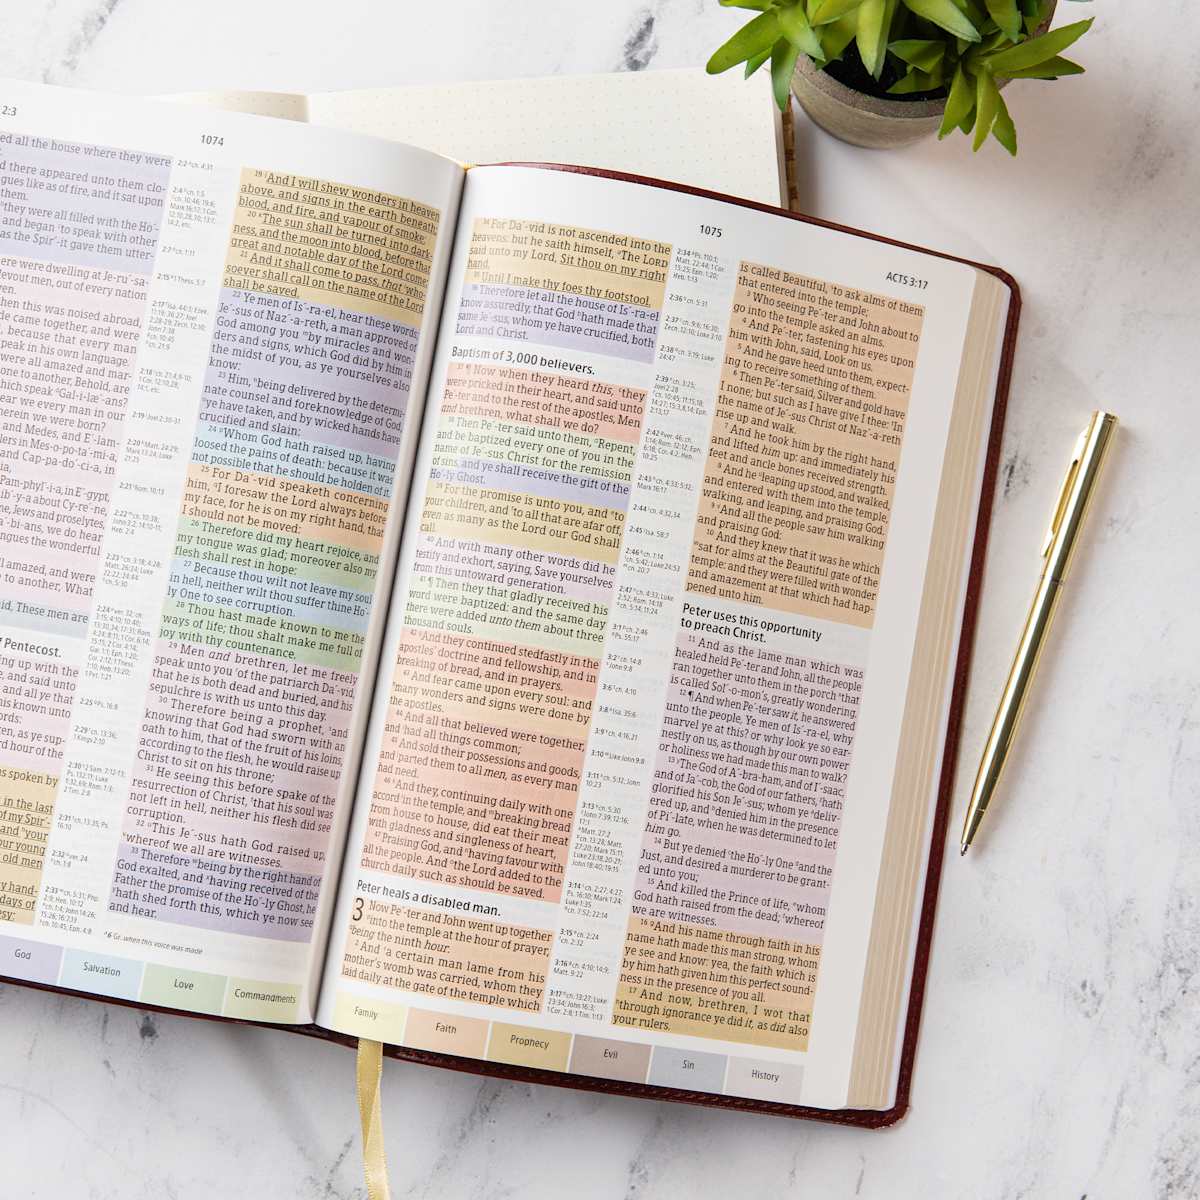 2:3
ed all the house where they were
d there appeared unto them clo-
gues like as of fire, and it sat upon
them.
they were all filled with the Ho´-
and began to speak with other
as the Spir´-it gave them utter-
ere were dwelling at Je-ru´-sa-
evout men, out of every nation
ven.
hen this was noised abroad,
de came together, and were
, because that every man
peak in his own language.
were all amazed and mar-
one to another, Behold, are
hich speak Gal-i-læ´-ans?
ear we every man in our
herein we were born?
and Medes, and E´-lam-
lers in Mes-o-po-ta´-mi-a,
and Cap-pa-do´-ci-a, in
ia,
Pam-phyl´-i-a, in E´-gypt,
ib´-y-a about Cy-re´-ne,
ne, Jews and proselytes,
a´-bi-ans, we do hear
ngues the wonderful
l amazed, and were
e to another, What
id, These men are
Pentecost.
ing up with the
e, and said unto
and all ye that
his known unto
ords:
ken, as ye sup-
rd hour of the
s spoken by
in the last
my Spir´-
and your
our young
old men
y hand-
days of
esy:
1074
2:2 ch. 4:31
2:4 ch. 1:5
ch. 10:46; 19:6;
Mark 16:17; 1 Cor.
12:10,28,30; 13:1;
14:2, etc.
2:7 ch. 1:11
2:15 1 Thess. 5:7
2:19 Joel 2:30-31
2:20 Matt. 24:29;
Mark 13:24; Luke
21:25
2:21 Rom. 10:13
2:25 Ps. 16:8
2:32 ver. 24
ch. 1:8
19 And I will shew wonders in heaven
above, and signs in the earth beneath;
blood, and fire, and vapour of smoke:
20 The sun shall be turned into dark-
ness, and the moon into blood, before that
great and notable day of the Lord come:
21 And it shall come to pass, that who-
soever shall call on the name of the Lord
shall be saved.
22 Ye men of Is´-ra-el, hear these words;
Je´-sus of Naz´-a-reth, a man approved of
God among you by miracles and won-
ders and signs, which God did by him in
the midst of you, as ye yourselves also
know:
23 Him, being delivered by the determi-
nate counsel and foreknowledge of God,
ye have taken, and by wicked hands have
crucified and slain:
24 Whom God hath raised up, having
loosed the pains of death: because it was
not possible that he should be holden of it.
25 For Da´-vid speaketh concerning
him, I foresaw the Lord always before
my face, for he is on my right hand, that
I should not be moved:
26 Therefore did my heart rejoice, and
my tongue was glad; moreover also my
flesh shall rest in hope:
27 Because thou wilt not leave my soul
in hell, neither wilt thou suffer thine Ho´-
ly One to see corruption.
28 Thou hast made known to me the
ways of life; thou shalt make me full of
joy with thy countenance.
29 Men and brethren, let me freely
speak unto you of the patriarch Da´-vid,
that he is both dead and buried, and his
sepulchre is with us unto this day.
30 Therefore being a prophet, and
knowing that God had sworn with an
oath to him, that of the fruit of his loins,
according to the flesh, he would raise up
Christ to sit on his throne;
31 He seeing this before spake of the
resurrection of Christ, that his soul was
not left in hell, neither his flesh did see
corruption.
32 This Je´-sus hath God raised up,
whereof we all are witnesses.
33 Therefore being by the right hand of
God exalted, and having received of the
Father the promise of the Ho´-ly Ghost, he
hath shed forth this, which ye now see
and hear.
6 Gr. when this voice was made
God
Salvation
Love
Commandments
1075
ACTS 3:17
34 For Da´-vid is not ascended into the
heavens: but he saith himself, The Lord
said unto my Lord, Sit thou on my right
hand,
35 Until I make thy foes thy footstool.
36 Therefore let all the house of Is´-ra-el
know assuredly, that God hath made that
same Je´-sus, whom ye have crucified, both
Lord and Christ.
Baptism of 3,000 believers.
37 ¶ Now when they heard this, they
were pricked in their heart, and said unto
Pe´-ter and to the rest of the apostles, Men
and brethren, what shall we do?
38 Then Pe´-ter said unto them, Repent,
and be baptized every one of you in the
name of Je´-sus Christ for the remission
of sins, and ye shall receive the gift of the
Ho´-ly Ghost.
39 For the promise is unto you, and to
your children, and to all that are afar off,
even as many as the Lord our God shall
call.
40 And with many other words did he
testify and exhort, saying, Save yourselves
from this untoward generation.
41 ¶ Then they that gladly received his
word were baptized: and the same day
there were added unto them about three
thousand souls.
42 And they continued stedfastly in the
apostles' doctrine and fellowship, and in
breaking of bread, and in prayers.
43 And fear came upon every soul: and
many wonders and signs were done by
the apostles.
44 And all that believed were together,
and had all things common;
45 And sold their possessions and goods,
and parted them to all men, as every man
had need.
46 And they, continuing daily with one
accord in the temple, and breaking bread
from house to house, did eat their meat
with gladness and singleness of heart,
47 Praising God, and having favour with
all the people. And the Lord added to the
church daily such as should be saved.
Peter heals a disabled man.
3 Now Pe´-ter and John went up together
into the temple at the hour of prayer,
being the ninth hour.
2 And a certain man lame from his
mother's womb was carried, whom they
laid daily at the gate of the temple which
2:34 Ps. 110:1;
Matt. 22:44; 1 Cor.
15:25; Eph. 1:20;
Heb. 1:13
2:36 ch. 5:31
2:37 ch. 9:6; 16:30;
Zech. 12:10; Luke 3:10
2:38 ch. 3:19; Luke
24:47
2:39 ch. 3:25;
Joel 2:28
2:43 ch. 4:33; 5:12;
Mark 16:17
2:44 ch. 4:32,34
2:45 Isa. 58:7
2:46 ch. 1:14
ch. 5:42; Luke 24:53
ch. 20:7
2:47 ch. 4:33; Luke
2:52; Rom. 14:18
ch. 5:14; 11:24
3:1 ch. 2:46
Ps. 55:17
3:2 ch. 14:8
John 9:8
3:6 ch. 4:10
3:8 Isa. 35:6
3:9 ch. 4:16,21
3:10 like John 9:8
3:11 ch. 5:12; John
10:23
3:15 ch. 2:24
ch. 2:32
3:16 ch. 4:10; 14:9;
Matt. 9:22
3:17 ch. 13:27; Luke
23:34; John 16:3;
1 Cor. 2:8; 1 Tim. 1:13
is called Beautiful, to ask alms of them
that entered into the temple;
3 Who seeing Pe´-ter and John about to
go into the temple asked an alms.
4 And Pe´-ter, fastening his eyes upon
him with John, said, Look on us.
5 And he gave heed unto them, expect-
ing to receive something of them.
6 Then Pe´-ter said, Silver and gold have
I none; but such as I have give I thee: In
the name of Je´-sus Christ of Naz´-a-reth
rise up and walk.
7 And he took him by the right hand,
and lifted him up: and immediately his
feet and ancle bones received strength.
8 And he leaping up stood, and walked,
and entered with them into the temple,
walking, and leaping, and praising God.
9 And all the people saw him walking
and praising God:
10 And they knew that it was he which
sat for alms at the Beautiful gate of the
temple: and they were filled with wonder
and amazement at that which had hap-
pened unto him.
Peter uses this opportunity
to preach Christ.
11 And as the lame man which was
healed held Pe´-ter and John, all the people
ran together unto them in the porch that
is called Sol´-o-mon's, greatly wondering.
12 ¶ And when Pe´-ter saw it, he answered
unto the people, Ye men of Is´-ra-el, why
marvel ye at this? or why look ye so ear-
nestly on us, as though by our own power
or holiness we had made this man to walk?
13 The God of A´-bra-ham, and of I´-saac,
and of Ja´-cob, the God of our fathers, hath
glorified his Son Je´-sus; whom ye deliv-
ered up, and denied him in the presence
of Pi´-late, when he was determined to let
him go.
14 But ye denied the Ho´-ly One and the
Just, and desired a murderer to be grant-
ed unto you;
15 And killed the Prince of life, whom
God hath raised from the dead; whereof
we are witnesses.
16 And his name through faith in his
name hath made this man strong, whom
ye see and know: yea, the faith which is
by him hath given him this perfect sound-
ness in the presence of you all.
17 And now, brethren, I wot that
through ignorance ye did it, as did also
your rulers.
Family
Faith
Prophecy
Evil
Sin
History